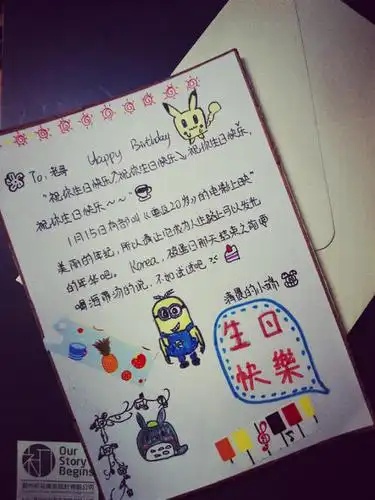 Happy Birthday
To:老哥
"祝你生日快乐↗祝你生日快乐↘祝你生日快乐,
祝你生日快乐~~"
1月15日有部叫《重返20岁》的电影上映"
美丽的年纪,所以请让它成为人生路上可以发光
的年华吧。Korea,破道日那天结束之前要
喝海带汤的说,不如试试吧><
清晨的小嬌
生日
快樂
Our
Story
Begins